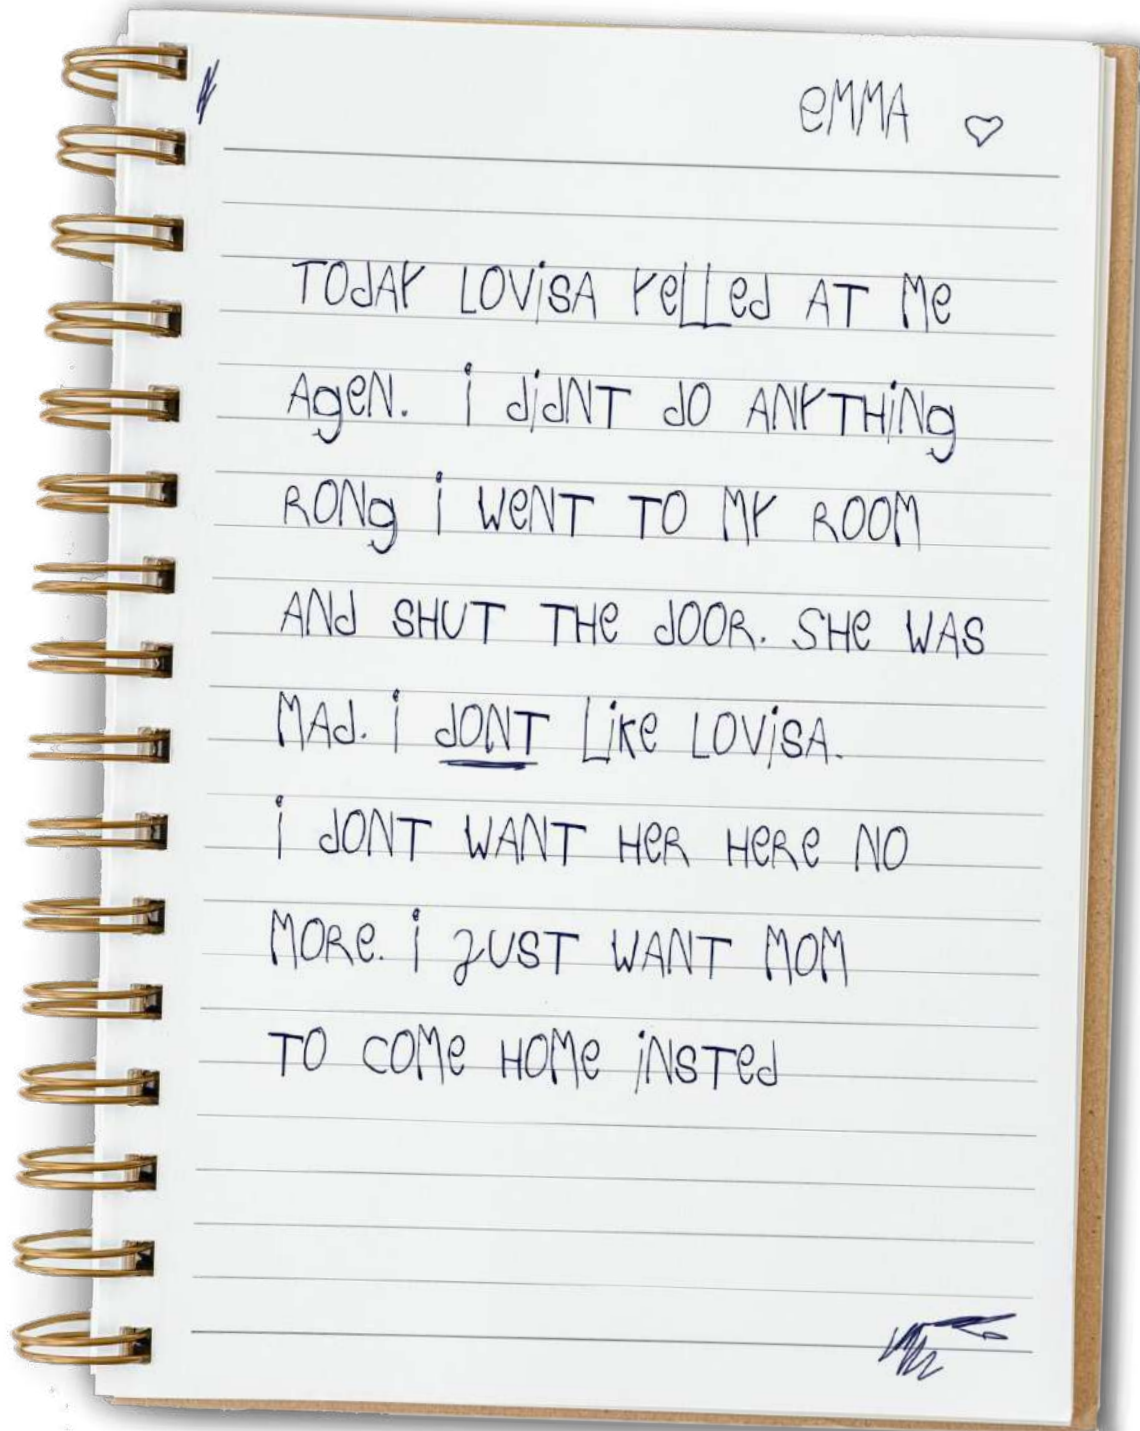 eMMA ♡
TOdAY LOViSA YeLLed AT Me
AgeN. i didNT dO ANYTHiNg
RONg i WeNT TO MY ROOM
ANd SHUT THe dOOR. SHe WAS
MAd. i dONT Like LOViSA.
i dONT WANT HeR HeRe NO
MORe. i JUST WANT MOM
TO COMe HOMe iNSTed